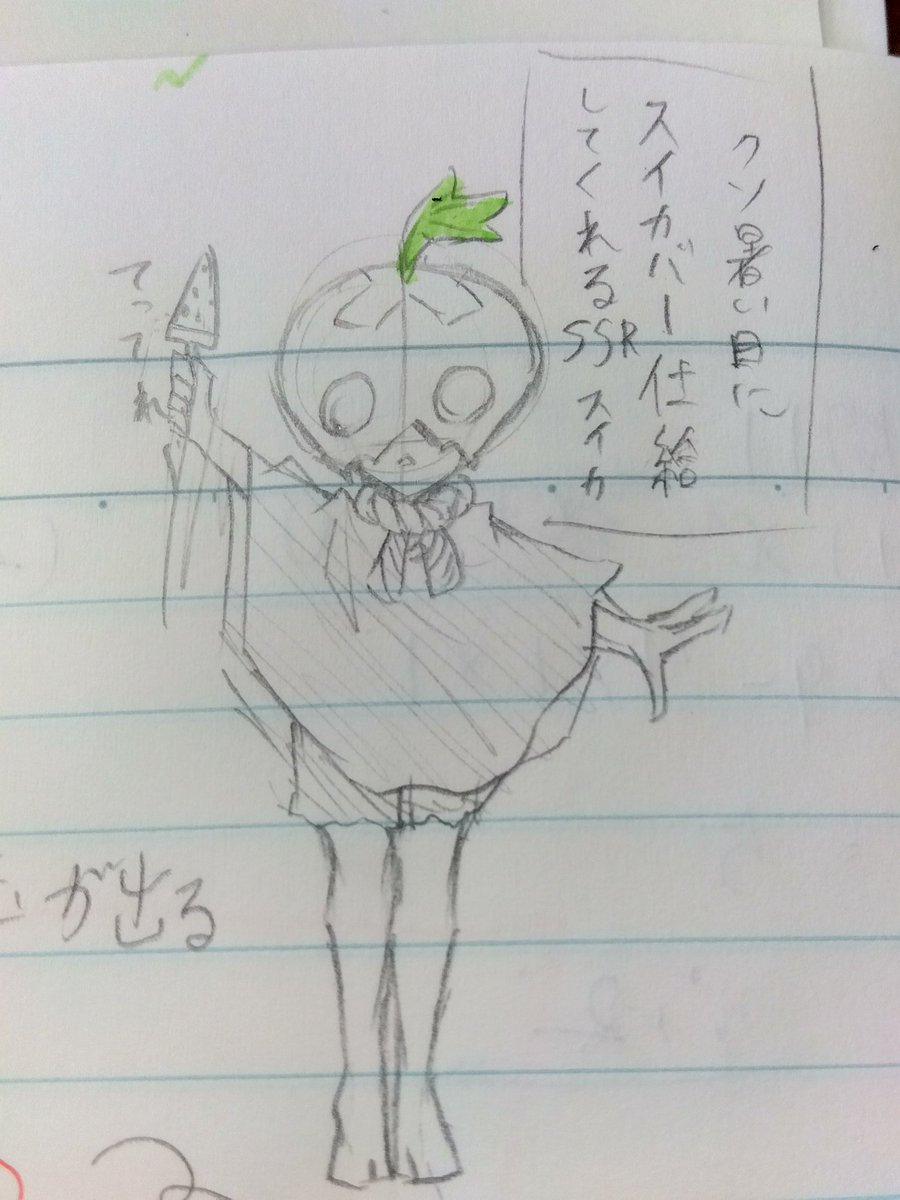 クソ暑い日に
スイカバー仕給
してくれるSSRスイカ
てってれ
が出る